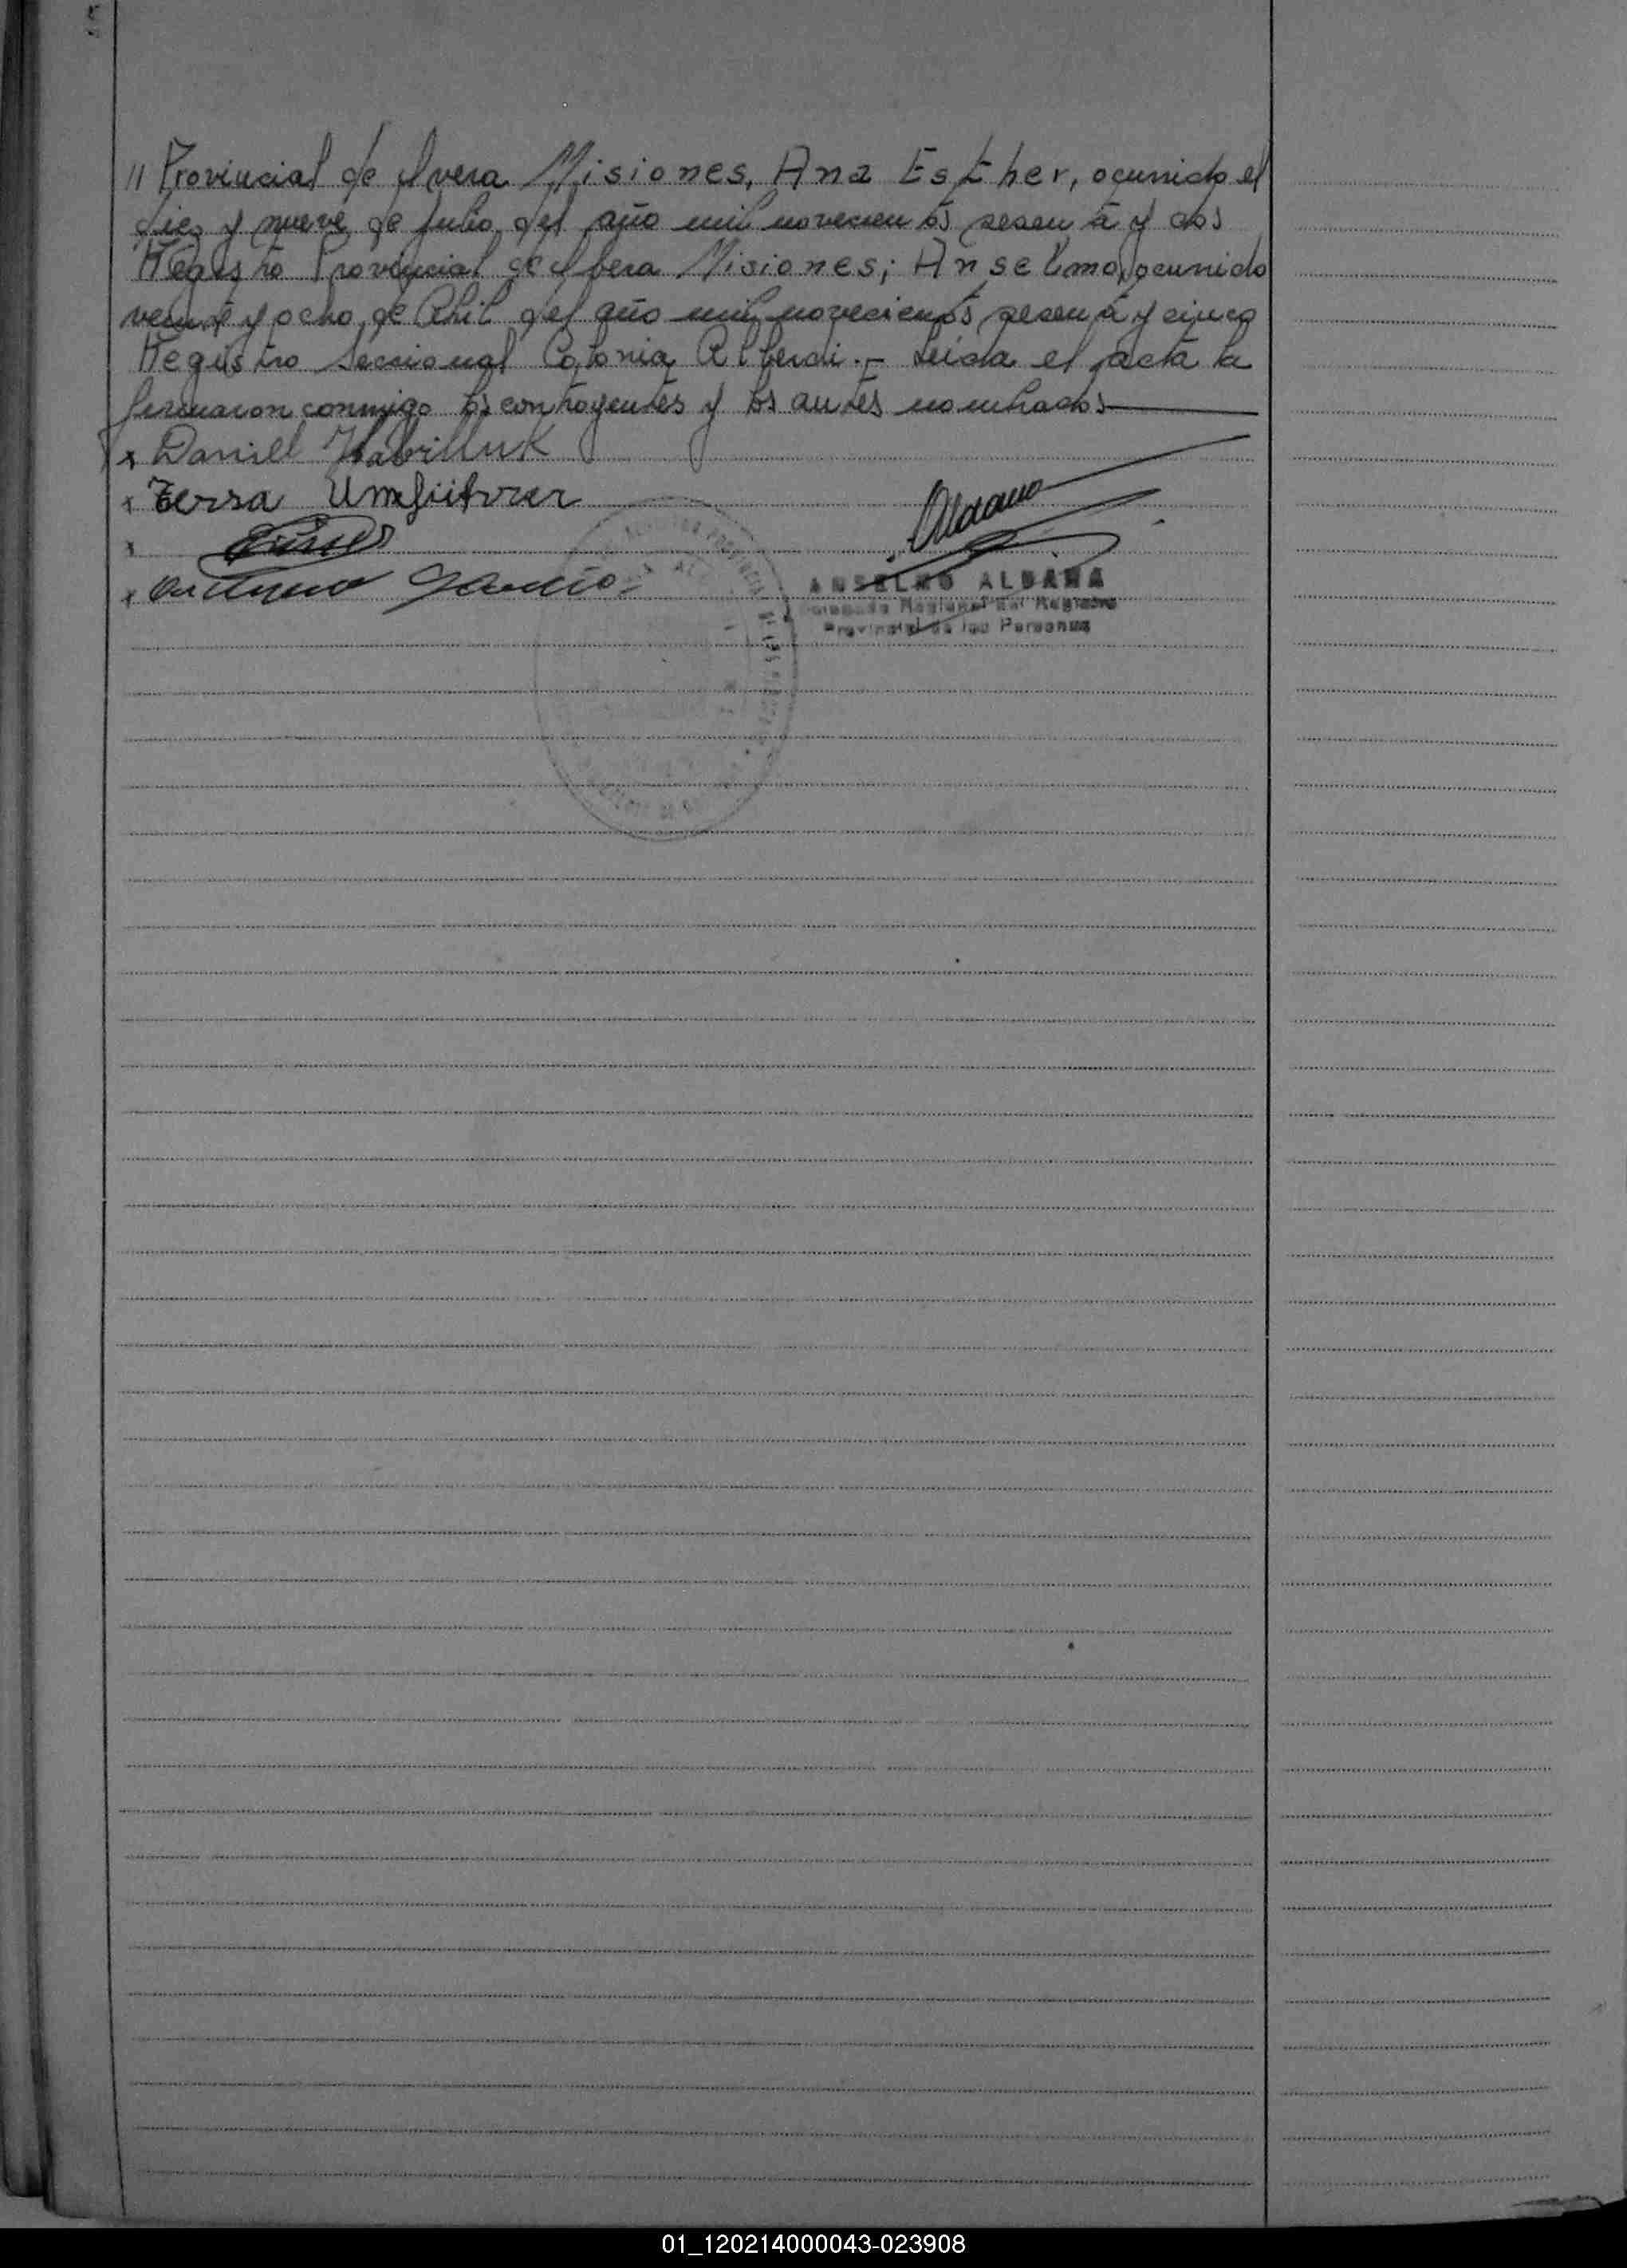 // Provincial de Olvera Misiones, Ana Esther, ocurrido el
diez y nueve de Julio del año mil novecientos sesenta y dos
Registro Provincial de Misiones; Anselmo, ocurrido
veinte y ocho de Abril del año mil novecientos sesenta y cinco
Registro Seccional Colonia Alberdi.- Leída el acta la
firmaron conmigo los contrayentes y los antes nombrados
x Daniel
x
x
x Arturo
ANSELMO ALDANA
Delegado Regional del Registro
Provincial de las Personas
01_120214000043-023908